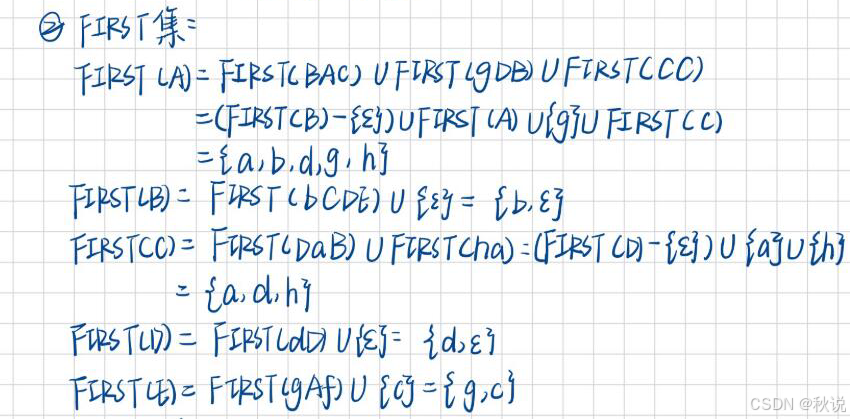 ② FIRST集:
FIRST(A) = FIRST(BAC) ∪ FIRST(gDB) ∪ FIRST(CC)
=(FIRST(B)-{ε})∪FIRST(A)∪{g}∪FIRST(C)
={a,b,d,g,h}
FIRST(B) = FIRST(bCDE) ∪ {ε} = {b,ε}
FIRST(C) = FIRST(DaB) ∪ FIRST(ha) = (FIRST(D)-{ε}) ∪ {a}∪{h}
= {a,d,h}
FIRST(D) = FIRST(dD) ∪{ε}= {d,ε}
FIRST(E) = FIRST(gAf) ∪ {c} = {g,c}
CSDN @秋说